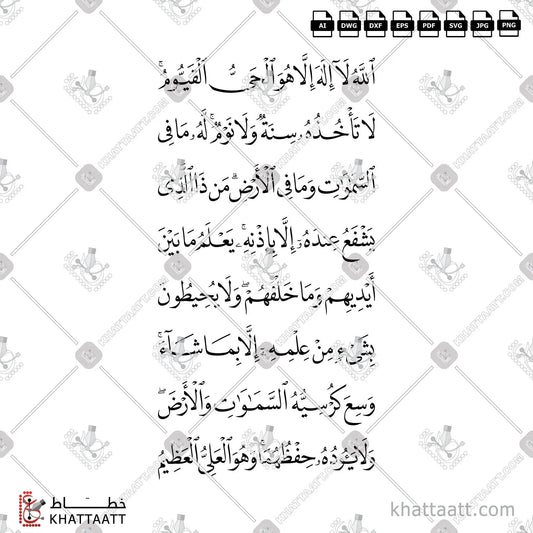 AI DWG DXF EPS PDF SVG JPG PNG
ٱللَّهُ لَآ إِلَٰهَ إِلَّا هُوَ ٱلْحَىُّ ٱلْقَيُّومُ ۚ
لَا تَأْخُذُهُۥ سِنَةٌ وَلَا نَوْمٌ ۚ لَّهُۥ مَا فِى
ٱلسَّمَٰوَٰتِ وَمَا فِى ٱلْأَرْضِ ۗ مَن ذَا ٱلَّذِى
يَشْفَعُ عِندَهُۥٓ إِلَّا بِإِذْنِهِۦ ۚ يَعْلَمُ مَا بَيْنَ
أَيْدِيهِمْ وَمَا خَلْفَهُمْ ۖ وَلَا يُحِيطُونَ
بِشَىْءٍ مِّنْ عِلْمِهِۦٓ إِلَّا بِمَا شَآءَ ۚ
وَسِعَ كُرْسِيُّهُ ٱلسَّمَٰوَٰتِ وَٱلْأَرْضَ ۖ
وَلَا يَـُٔودُهُۥ حِفْظُهُمَا ۚ وَهُوَ ٱلْعَلِىُّ ٱلْعَظِيمُ
خطاط
KHATTAATT
khattaatt.com